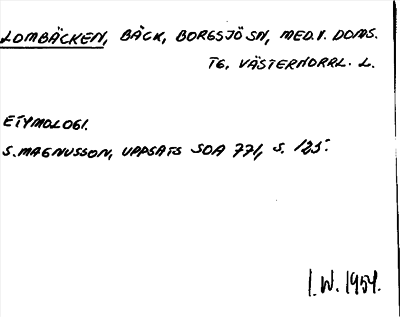 LOMBÄCKEN, BÄCK, BORGSJÖ SN, MED.V. DOMS.
TG, VÄSTERNORRL. L.
ETYMOLOGI.
S. MAGNUSSON, UPPSATS SOA 771, S. 125.
I.W. 1954.